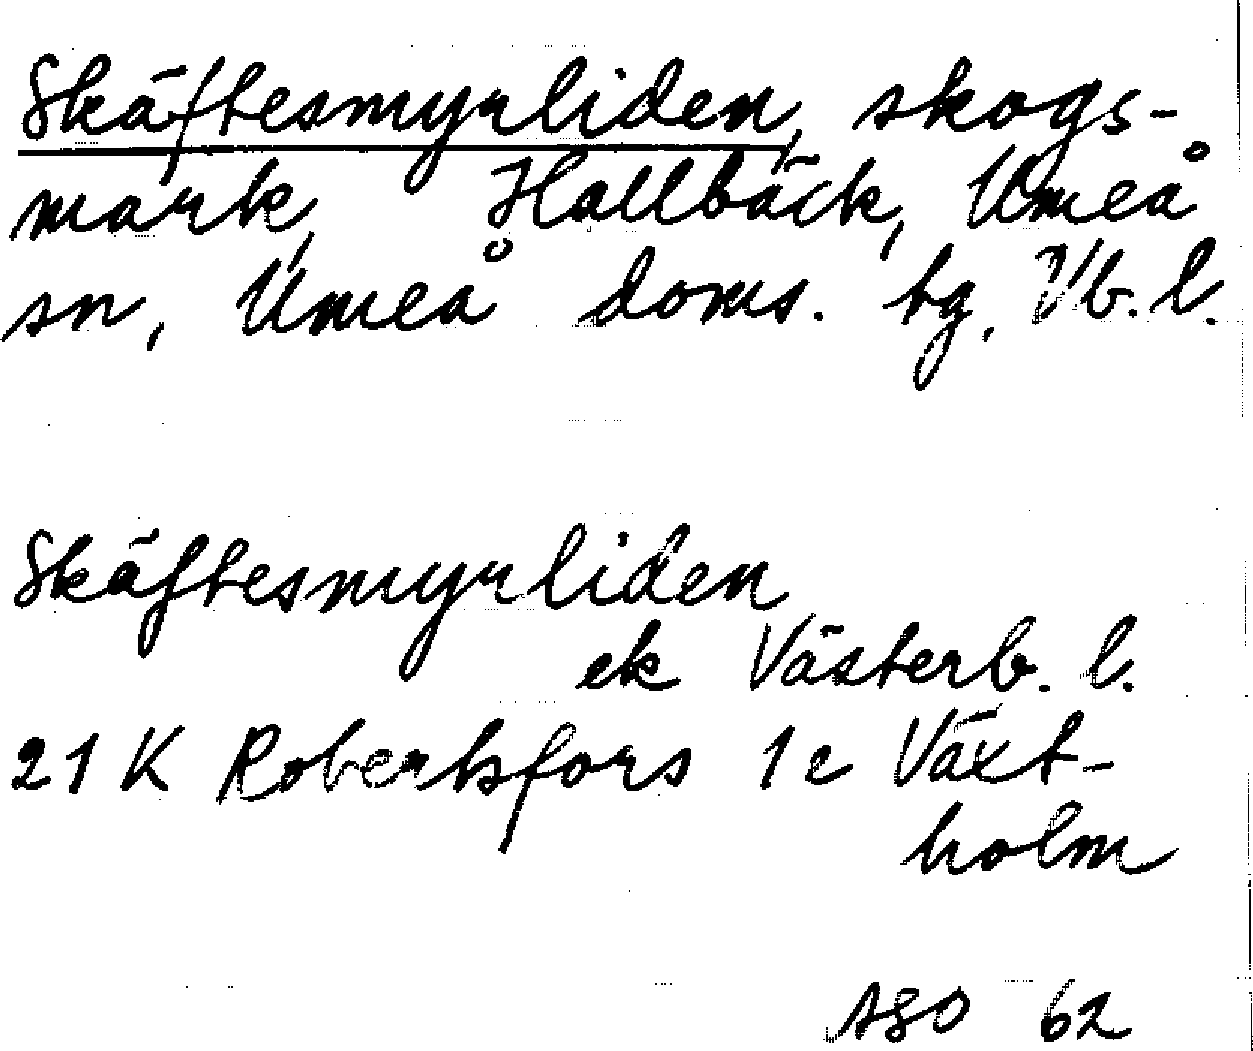 Skäftesmyrliden, skogs-
mark, Hallbäck, Umeå
sn, Umeå doms. tg, Vb. l.
Skäftesmyrliden
ek Västerb. l.
21 K Robertsfors 1 c Växt-
holm
ASO 62